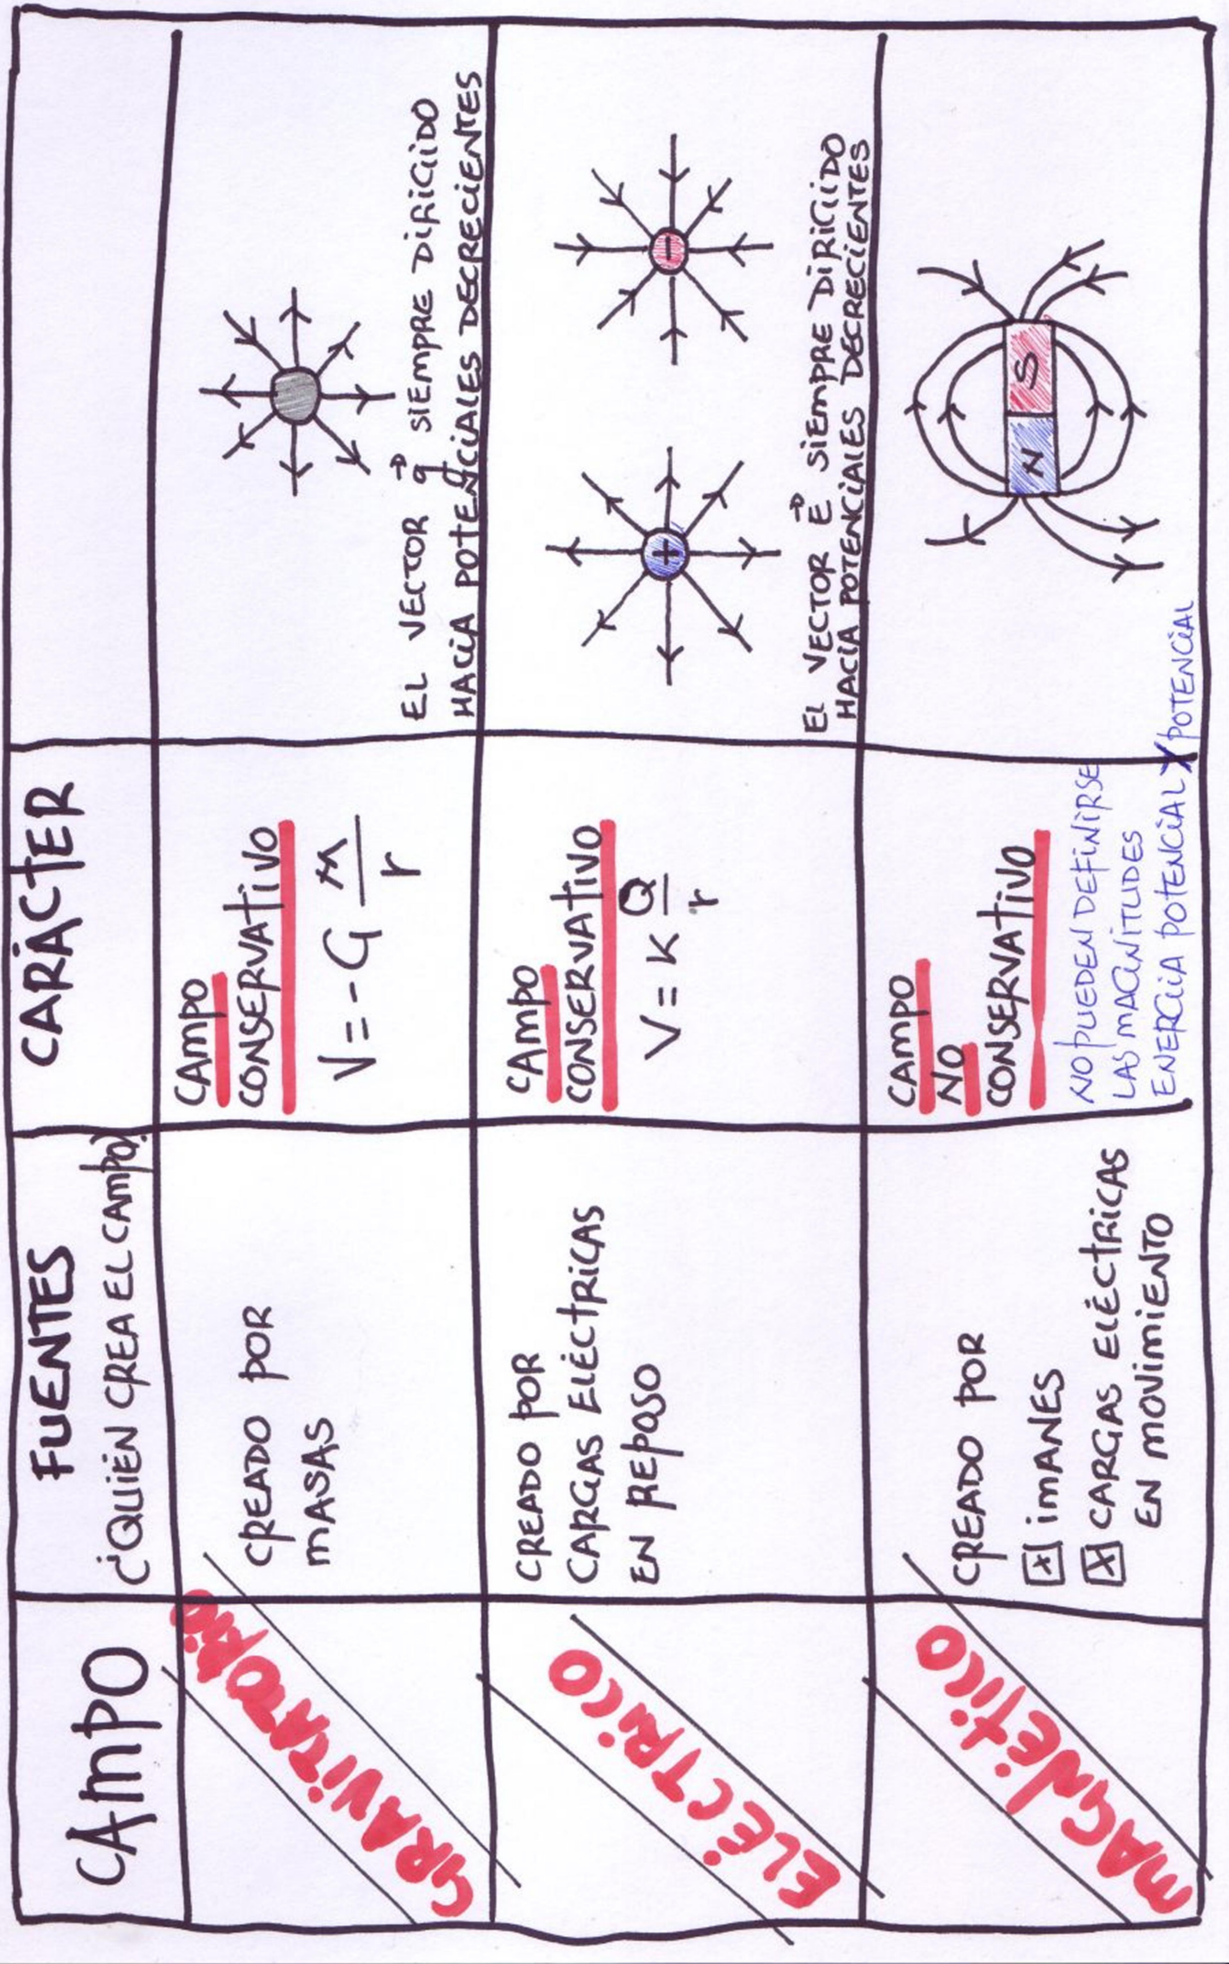 CAMPO
FUENTES
¿QUIÉN CREA EL CAMPO?
CARÁCTER
GRAVITATORIO
CREADO POR
MASAS
CAMPO
CONSERVATIVO
V = - G M
r
EL VECTOR g SIEMPRE DIRIGIDO
HACIA POTENCIALES DECRECIENTES
ELÉCTRICO
CREADO POR
CARGAS ELÉCTRICAS
EN REPOSO
CAMPO
CONSERVATIVO
V = K Q
r
+
-
EL VECTOR E SIEMPRE DIRIGIDO
HACIA POTENCIALES DECRECIENTES
MAGNÉTICO
CREADO POR
IMANES
CARGAS ELÉCTRICAS
EN MOVIMIENTO
CAMPO
NO
CONSERVATIVO
NO PUEDEN DEFINIRSE
LAS MAGNITUDES
ENERGÍA POTENCIAL Y POTENCIAL
N S